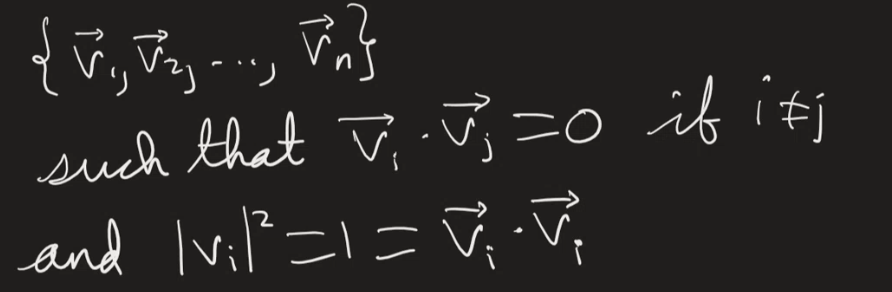 {v⃗₁, v⃗₂, ..., v⃗ₙ}
such that v⃗ᵢ · v⃗ⱼ = 0 if i ≠ j
and |vᵢ|² = 1 = v⃗ᵢ · v⃗ᵢ